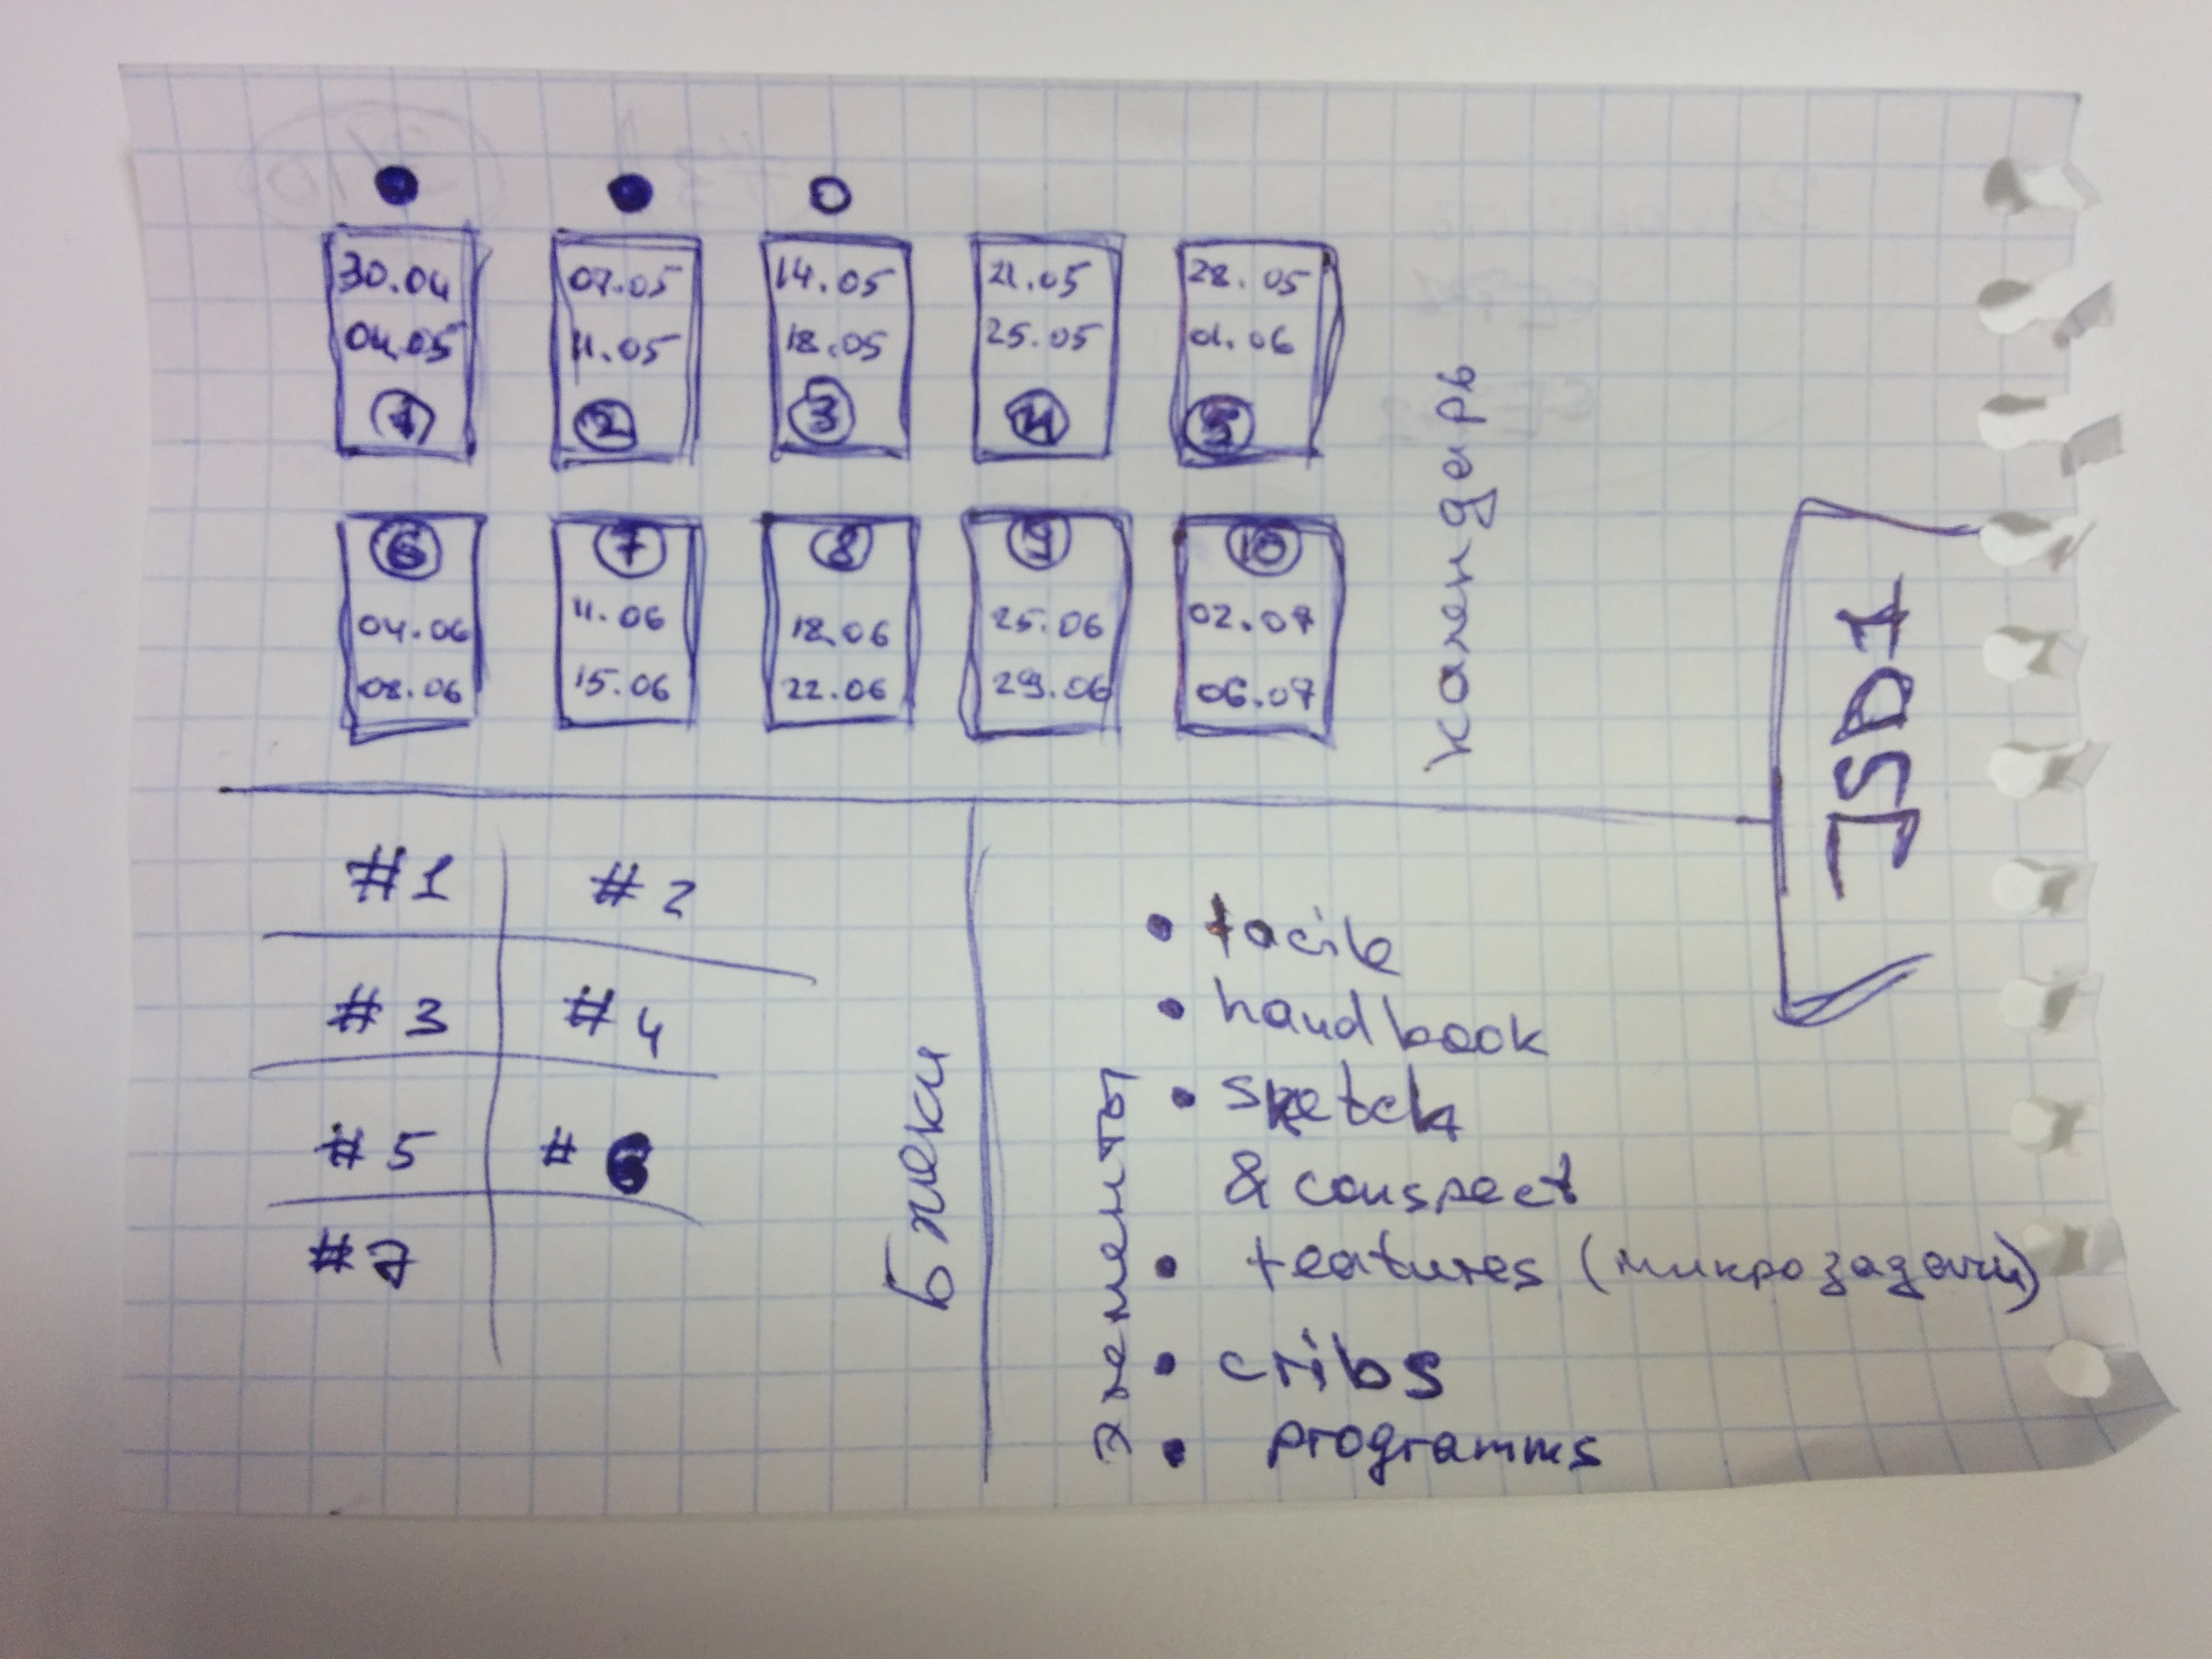 30.04
04.05
1
07.05
11.05
2
14.05
18.05
3
21.05
25.05
4
28.05
01.06
5
6
04.06
08.06
7
11.06
15.06
8
18.06
22.06
9
25.06
29.06
10
02.07
06.07
календарь
JSD1
#1
#2
#3
#4
#5
#6
#7
Блоки
элементы
• facile
• handbook
• sketch
& conspect
• features (микрозадачи)
• cribs
• programms